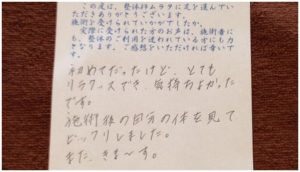 この度は、整体院ムラタに足を運んでい
ただきありがとうございます。
施術を受けていかがでしたか。
実際に受けられた方のお声は、施術者に
も、整体のご利用を迷われている方にも力
となります。ご感想をいただければ幸いで
す。
初めてだったけど、とても
リラックスでき、気持ちよかった
です。
施術後の自分の体を見て
ビックリしました。
また、きま〜す。